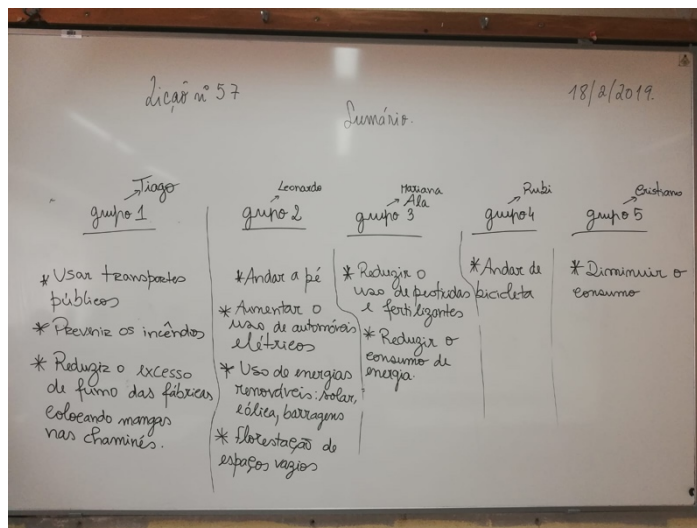 Lição nº 57
18/2/2019.
Sumário.
Tiago
grupo 1
* Usar transportes
públicos
* Prevenir os incêndios
* Reduzir o excesso
de fumo das fábricas
colocando mangas
nas chaminés.
Leonardo
grupo 2
* Andar a pé
* Aumentar o
uso de automóveis
elétricos
* Uso de energias
renováveis: solar,
eólica, barragens
* Florestação de
espaços vazios
Mariana
Ala
grupo 3
* Reduzir o
uso de pesticidas
e fertilizantes
* Reduzir o
consumo de
energia.
Rubi
grupo 4
* Andar de
bicicleta
Cristiano
grupo 5
* Diminuir o
consumo